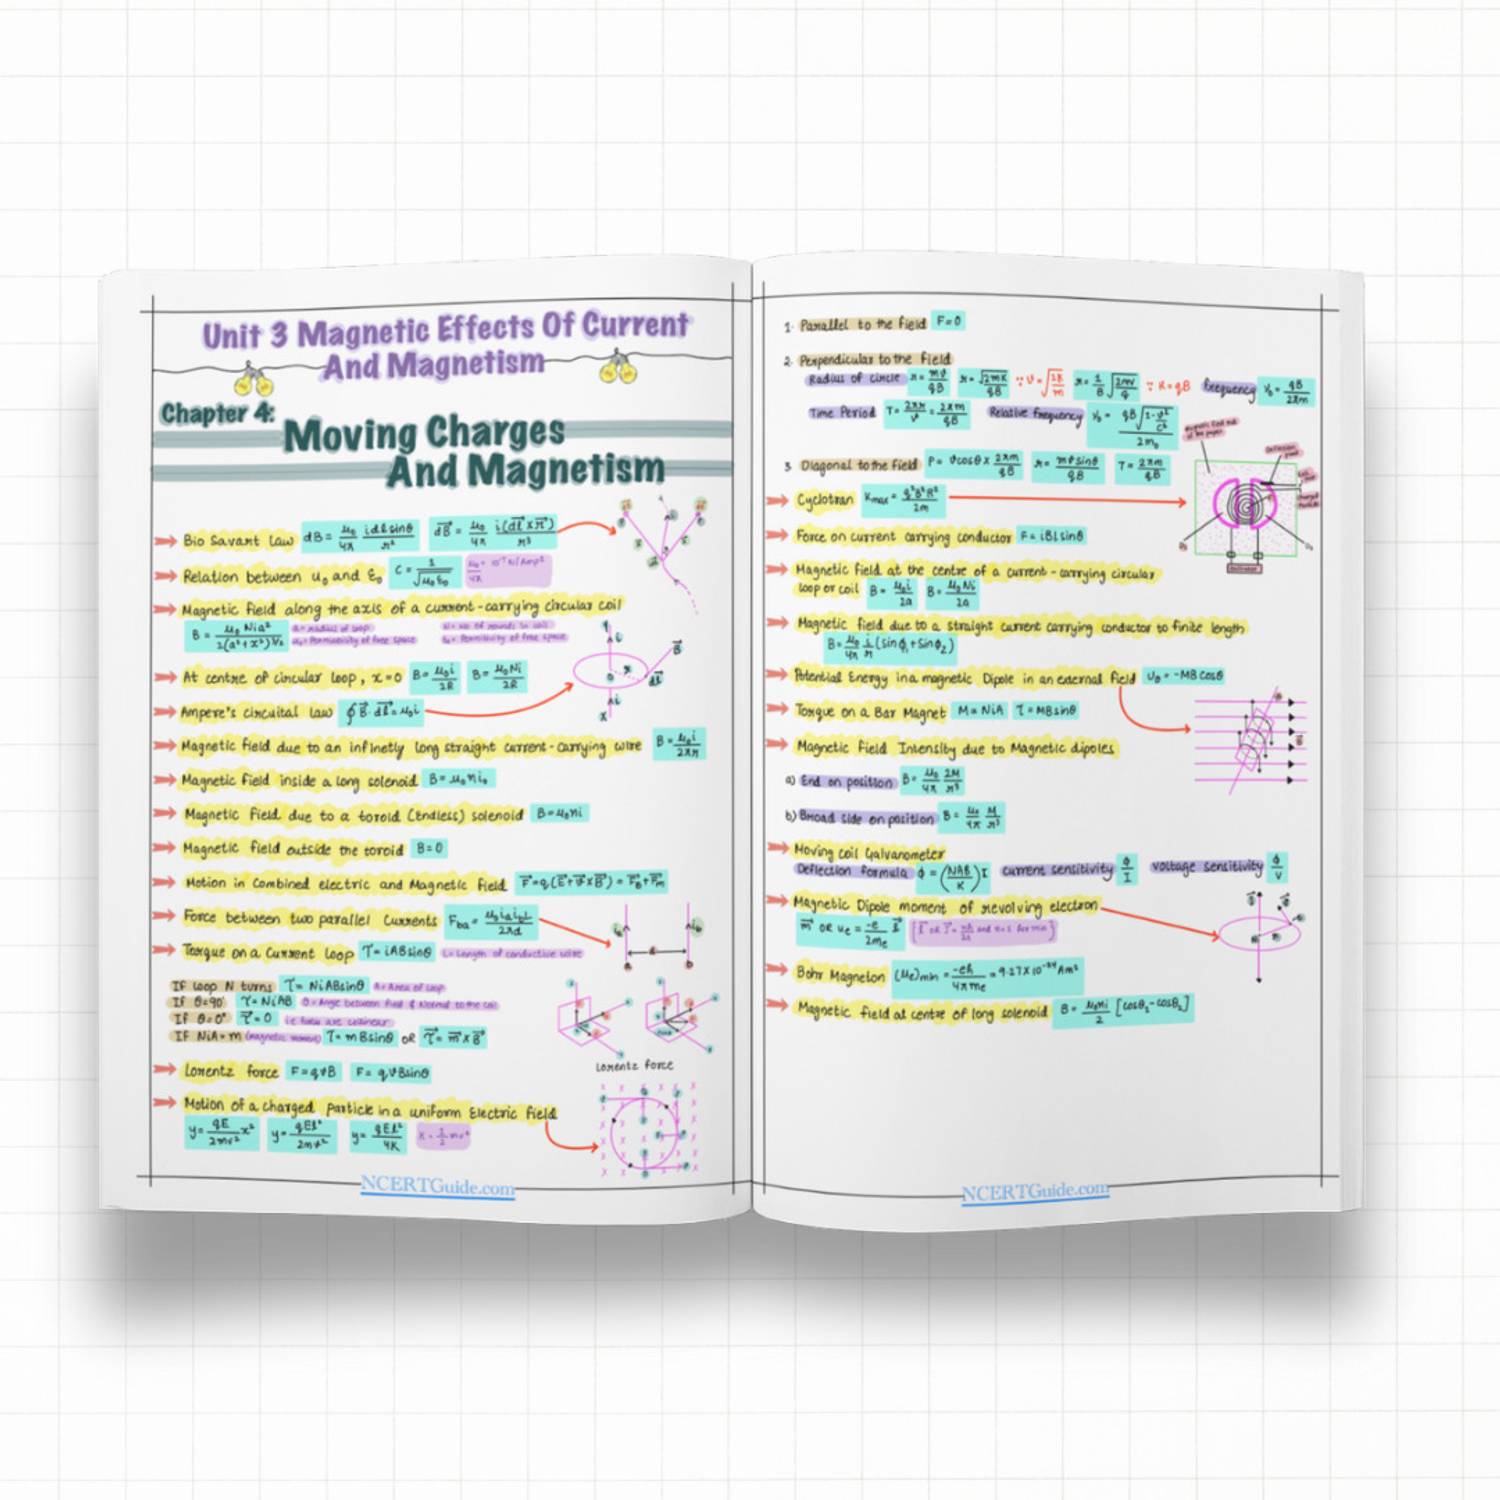 Unit 3 Magnetic Effects Of Current
And Magnetism
Chapter 4:
Moving Charges
And Magnetism
Bio Savart Law dB = μ₀/4π idlsinθ/r² dB⃗ = μ₀/4π i(dl⃗ x r⃗)/r³
Relation between u₀ and ε₀ C = 1/√μ₀ε₀ μ₀/4π = 10⁻⁷ N/Amp²
Magnetic field along the axis of a current-carrying circular coil
B = μ₀Nia²/2(a²+x²)^3/2 a = radius of loop N = No of rounds in coil
u₀ = Permeability of free space ε₀ = Permitivity of free space
At centre of circular loop, x=0 B = μ₀i/2R B = μ₀Ni/2R
Ampere's circuital law ∮B⃗·dl⃗ = μ₀i
Magnetic field due to an infinetly long straight current-carrying wire B = μ₀i/2πr
Magnetic field inside a long solenoid B = μ₀ni₀
Magnetic field due to a toroid (Endless) solenoid B = μ₀ni
Magnetic field outside the toroid B=0
Motion in Combined electric and Magnetic field F⃗=q(E⃗+v⃗xB⃗) = F⃗ₑ+F⃗ₘ
Force between two parallel Currents Fba = μ₀iaibL/2πd
Torque on a Current loop τ = iABsinθ L=Length of conductive wire
If loop N turns τ = NiABsinθ A=Area of loop
If θ=90° τ=NiAB θ=Angle between field & Normal to the coil
If θ=0° τ⃗=0 i.e
If NiA=m (magnetic moment) τ=mBsinθ OR τ⃗=m⃗xB⃗
Lorentz force
Lorentz force F=qvB F=qvBsinθ
Motion of a charged particle in a uniform Electric field
y = qE/2mv² x² y = qEl²/2mv² y = qEl²/4K K = 1/2 mv²
NCERTGuide.com
1. Parallel to the field F=0
2. Perpendicular to the field
Radius of circle r = mv/qB r = √2mK/qB ∵ v = √2K/m r = 1/B √2mv/q ∵ K=qB frequency V₀ = qB/2πm
Time Period T = 2πr/v = 2πm/qB Relative frequency V₀ = qB√1-v²/c² / 2m₀
3. Diagonal to the field P = vcosθ x 2πm/qB r = mvsinθ/qB T = 2πm/qB
Cyclotran Kmax = q²B²R²/2m
Force on current carrying conductor F = iBlsinθ
Magnetic field at the centre of a current-carrying circular
loop or coil B = μ₀i/2a B = μ₀Ni/2a
Magnetic field due to a straight current carrying conductor to finite length
B = μ₀/4π i/r (sinϕ₁+sinϕ₂)
Potential Energy in a magnetic Dipole in an external field Uθ = -MBcosθ
Torque on a Bar Magnet M = NiA τ = MBsinθ
Magnetic Field Intensity due to Magnetic dipoles
a) End on position B = μ₀/4π 2M/r³
b) Broad side on position B = μ₀/4π M/r³
Moving coil Galvanometer
Deflection formula ϕ = (NAB/K)I current sensitivity ϕ/I voltage sensitivity ϕ/V
Magnetic Dipole moment of revolving electron
m⃗ OR ue = -e/2me
Bohr Magneton (μe)min = -eh/4πme = 9.27X10⁻²⁴Am²
Magnetic field at centre of long solenoid B = μ₀ni/2 [cosθ₁-cosθ₂]
NCERTGuide.com